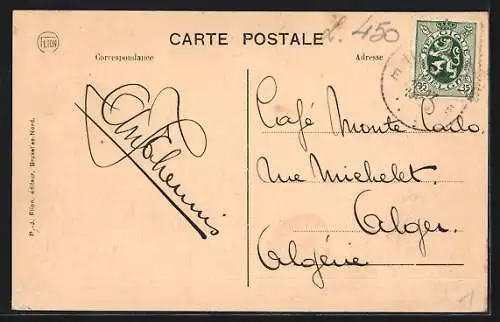 FLION
CARTE POSTALE
L. 450
Correspondance
Adresse
BELGIQUE
35 35
Café Monte Carlo.
rue Michelet.
Alger.
Algérie
P.-J. Flion, éditeur, Bruxelles-Nord.
1